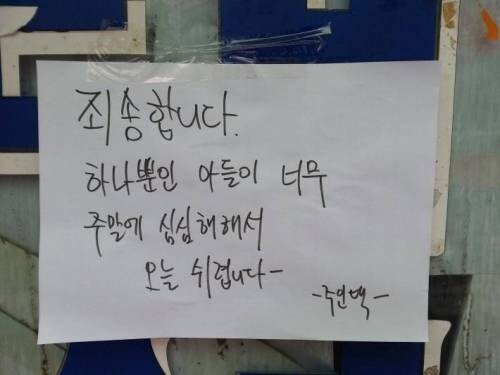 죄송합니다.
하나뿐인 아들이 너무
주말에 심심해해서
오늘 쉬렵니다-
-주인백-